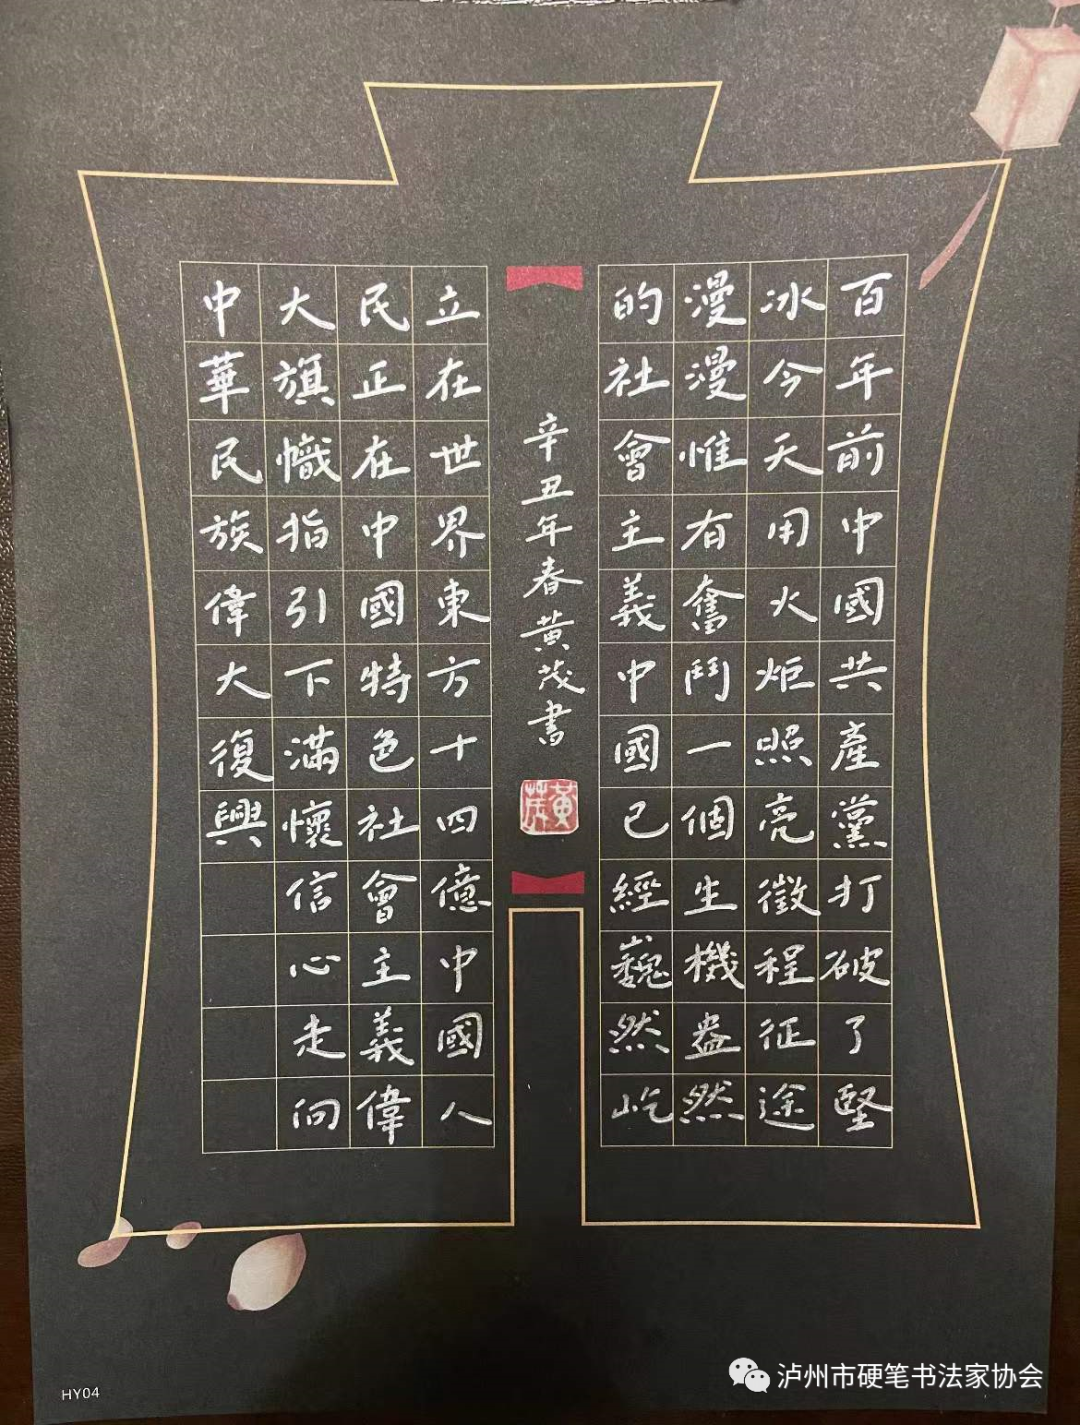 百年前中國共產黨打破了堅
冰今天用火炬照亮徵程征途
漫漫惟有奮鬥一個生機盎然
的社會主義中國已經巍然屹
辛丑年春黄茂書
黄茂
立在世界東方十四億中國人
民正在中國特色社會主義偉
大旗幟指引下滿懷信心走向
中華民族偉大復興
HY04
泸州市硬笔书法家协会